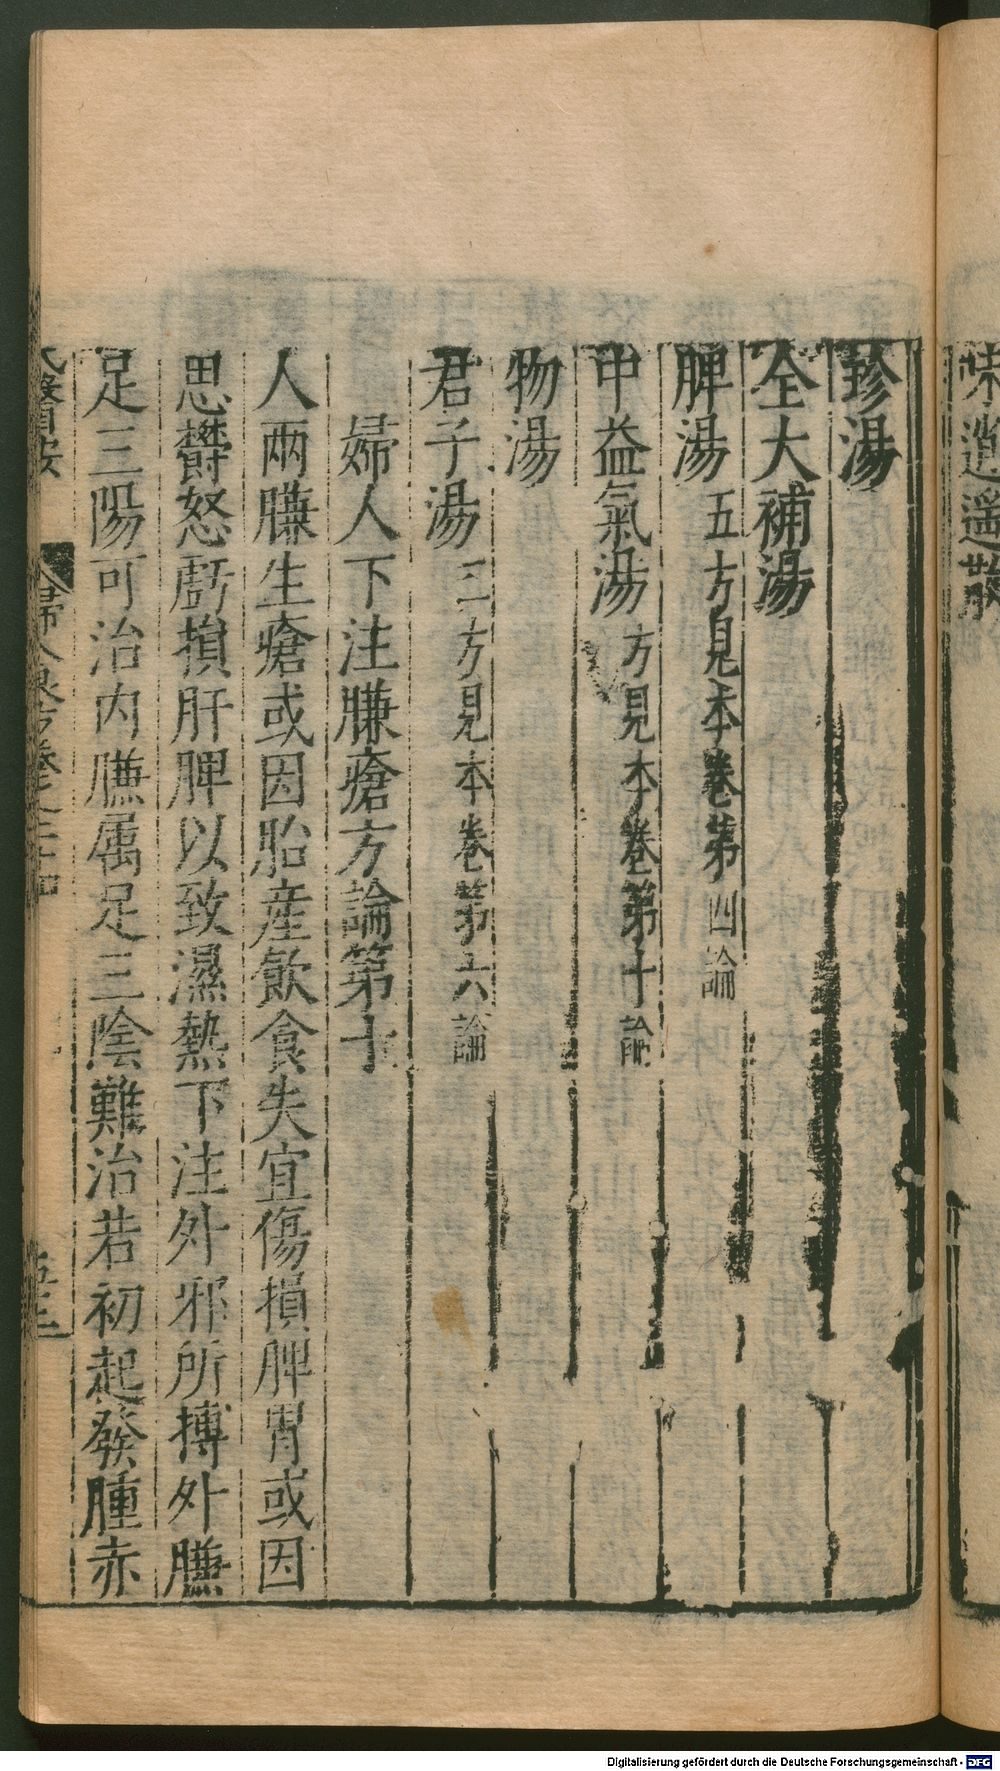 味逍遥散
珍湯
全大補湯
脾湯 五方見本卷第四論
中益氣湯 方見本卷第十論
物湯
君子湯 三方見本卷第六論
婦人下注臁瘡方論第十
人兩臁生瘡或因胎產飲食失宜傷損脾胃或因
思鬱怒虧損肝脾以致濕熱下注外邪所搏外臁
足三陽可治内臁属足三陰難治若初起發腫赤
Digitalisierung gefördert durch die Deutsche Forschungsgemeinschaft - DFG